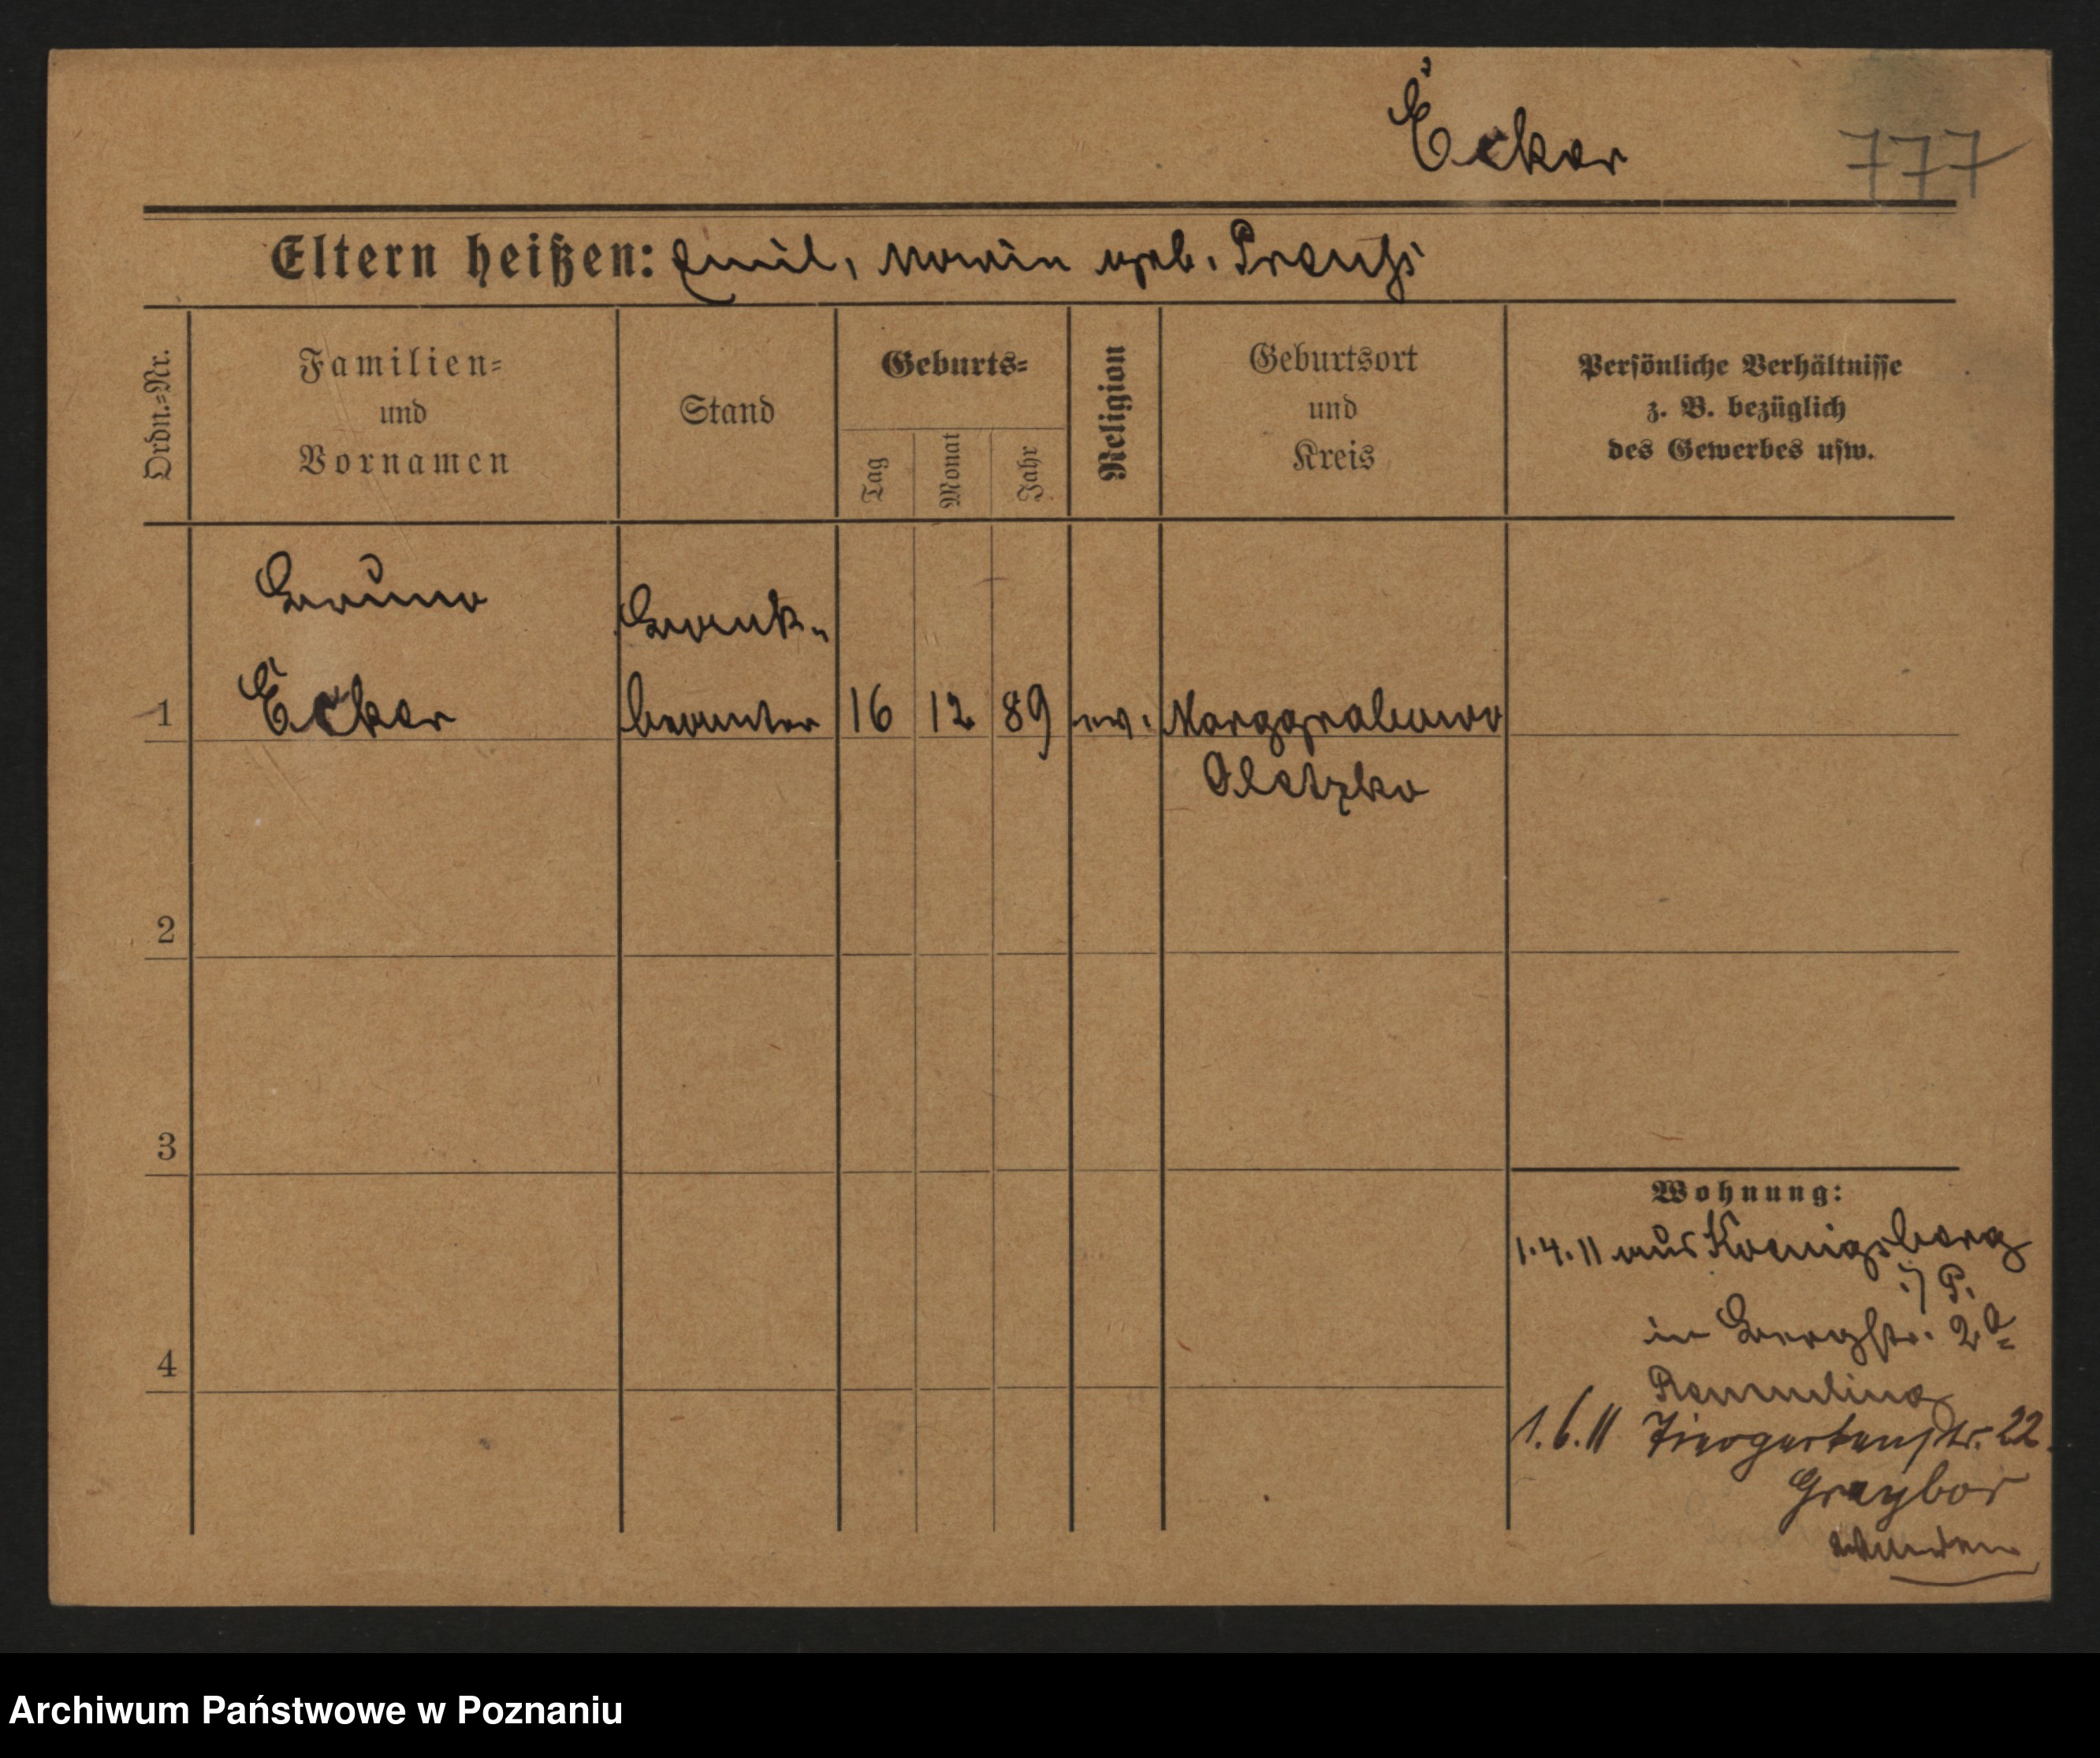 Ecker 777
Eltern heißen: Emil, Marie geb. Preuß
Ordn.=Nr.
Familien=
und
Vornamen
Stand
Geburts=
Tag
Monat
Jahr
Religion
Geburtsort
und
Kreis
Persönliche Verhältnisse
z. B. bezüglich
des Gewerbes usw.
Bruno
Bank-
1 Ecker beamter 16 12 89 ev. Marggrabowa
Oletzko
2
3
4
Wohnung:
1.4.11 aus Koenigsberg
i/P.
in Bergstr. 2a
1.6.11 Tiergartenstr. 22.
Archiwum Państwowe w Poznaniu